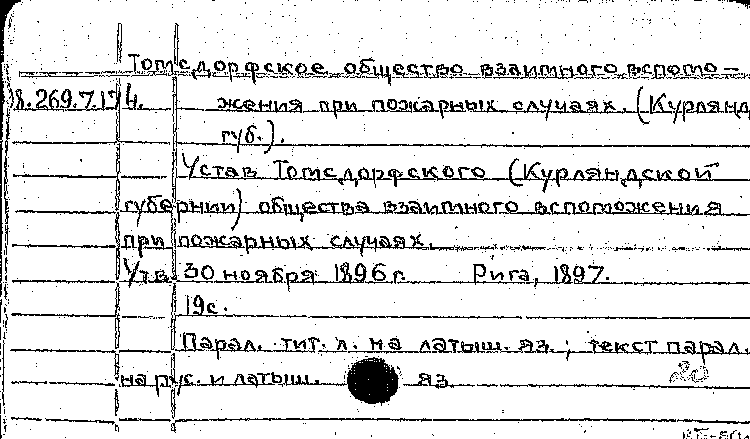 Томсдорфское общество взаимного вспомо-
18.269.7.174. жения при пожарных случаях. (Курлянд
губ.).
Устав Томсдорфского (Курляндской
губернии) общества взаимного вспоможения
при пожарных случаях.
Утв. 30 ноября 1896 г. Рига, 1897.
19с.
Парал. тит. л. на латыш. яз.; текст парал.
на рус. и латыш. яз.
20